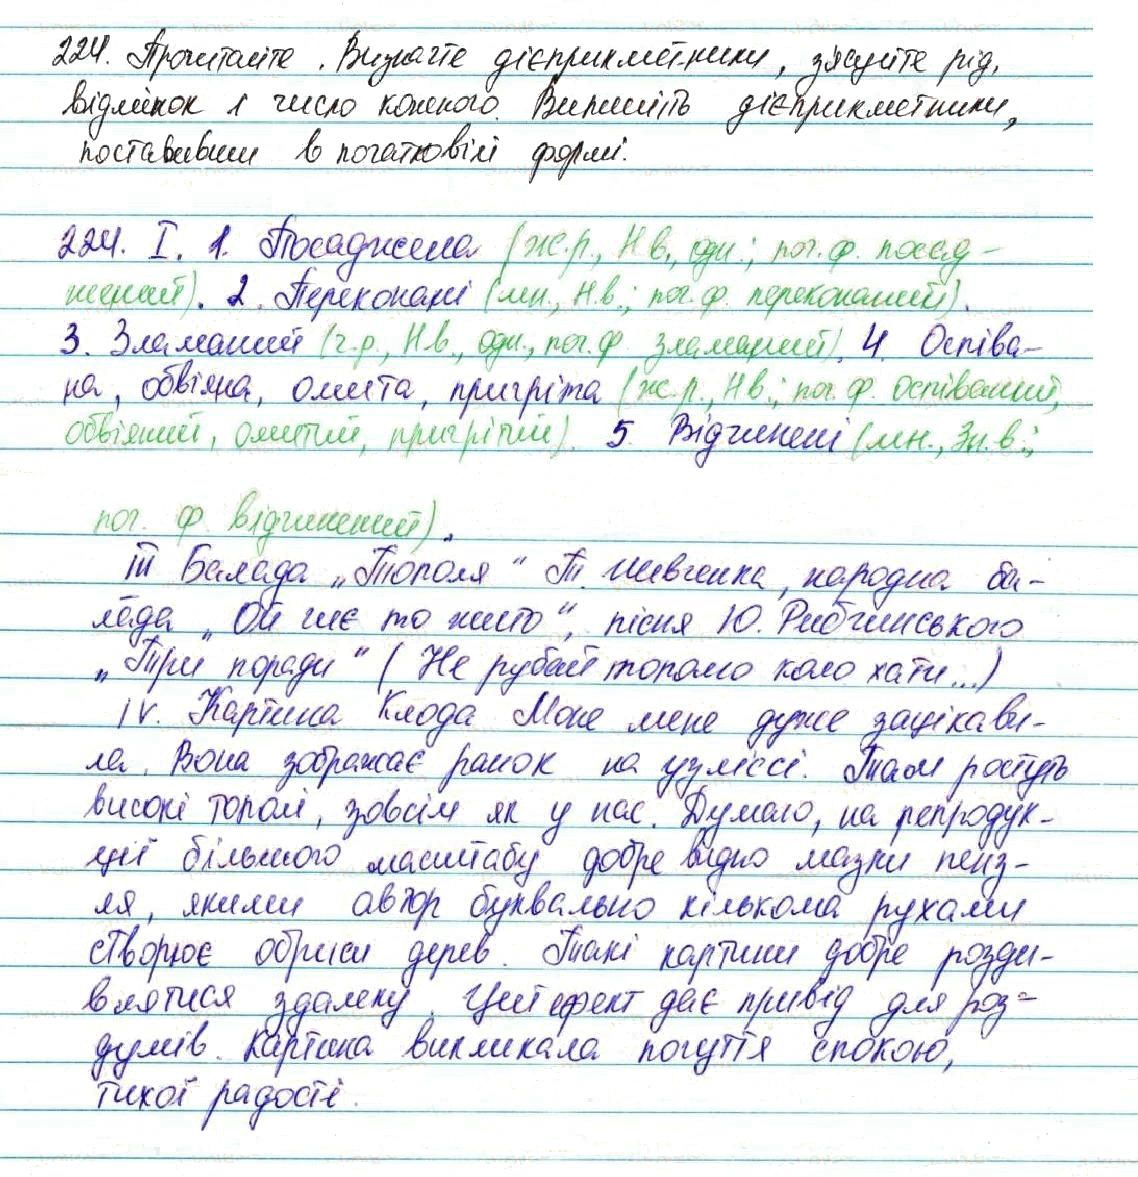 224. Прочитайте. Визначте дієприкметники, з'ясуйте рід,
відмінок і число кожного. Випишіть дієприкметники,
поставивши в початковій формі.
224. I. 1. Посаджена (ж.р., Н.в., одн.; поч. ф. посад-
жений). 2. Переконані (мн., Н.в.; поч. ф. переконаний).
3. Зламаний (ч.р., Н.в., одн., поч. ф. зламаний). 4. Оспіва-
на, обвіяна, омита, пригріта (ж.р., Н.в.; поч. ф. оспіваний,
обвіяний, омитий, пригрітий). 5. Відчинені (мн., Зн.в.;
поч. ф. відчинений).
III Балада „Тополя" Т. Шевченка, народна ба-
лада „Ой чиє то жито", пісня Ю. Рибчинського
„Три поради" (Не рубай тополю коло хати...)
IV. Картина Клода Моне мене дуже зацікави-
ла. Вона зображає ранок на узліссі. Там ростуть
високі тополі, зовсім як у нас. Думаю, на репродук-
ції більшого масштабу добре видно мазки пенз-
ля, якими автор буквально кількома рухами
створює обриси дерев. Такі картини добре розди-
влятися здалеку. Цей ефект дає привід для роз-
думів. Картина викликала почуття спокою,
тихої радості.